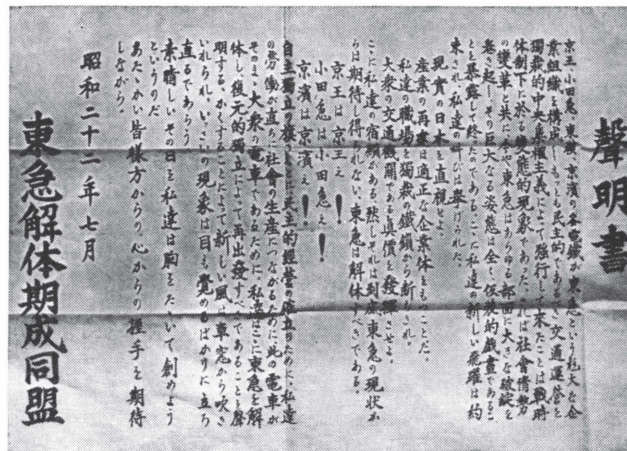 聲明書
京王、小田急、東横、京濱の各電鐵が東急という尨大な企
業組織を構成し、もっとも民主的であるべき交通運営を
獨裁的中央集権主義によって強行して来たことは戰時
体制下に於る変態的現象であった。されば社會情勢
の変革と共に今や東急はあらゆる部面に大きな破綻を
巻き起し、その巨大なる姿態は全く仮装的戲畫であるこ
とを暴露して終たのである。ここに私達の新しい飛躍は約
束され、私達の叫びは挙げられた。
現實の日本を直視せよ。
産業の再建は適正な企業体をもつことだ。
私達の職場を獨裁の鐵鎖から断ち切れ。
大衆の交通機関である真價を発揮させよ。
ここに私達の宿願がある。然しそれは到底東急の現状か
らは期待し得られない。東急は解体すべきである。
京王は京王え!
小田急は小田急え!
京濱は京濱え!
自主獨立の旗のもとに民主的經營の確立のために、私達
の労働が直ちに社會の生産につながるために、此の電車が
そのまゝ大衆の電車であるために、私達はここに東急を解
体し、復元的獨立によって再出發すべきであることを聲
明する。かくすることによって新しい風は車窓から吹き
いれられ、いっさいの現象は目も覚めるばかりに立ち
直るであらう。
素晴しいその日を私達は胸をたゝいて創めよう
というのだ
あたゝかい皆様方からの、心からの握手を期待
しながら。
昭和二十二年七月
東急解体期成同盟